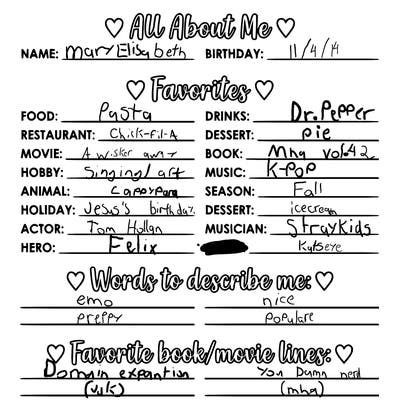 ♡ All About Me ♡
NAME: MaryElisabeth BIRTHDAY: 11/4/14
♡ Favorites ♡
FOOD: Pasta DRINKS: Dr.Pepper
RESTAURANT: Chick-fil-A DESSERT: pie
MOVIE: A wisker away BOOK: Mha vol.42
HOBBY: Singing/art MUSIC: K-POP
ANIMAL: SEASON: Fall
HOLIDAY: Jesus's birthday DESSERT: icecream
ACTOR: Tom Hollan MUSICIAN: Straykids
HERO: Felix Katseye
♡ Words to describe me: ♡
emo nice
preppy populare
♡ Favorite book/movie lines: ♡
Domain expantion You Dumn nerd
(mha)